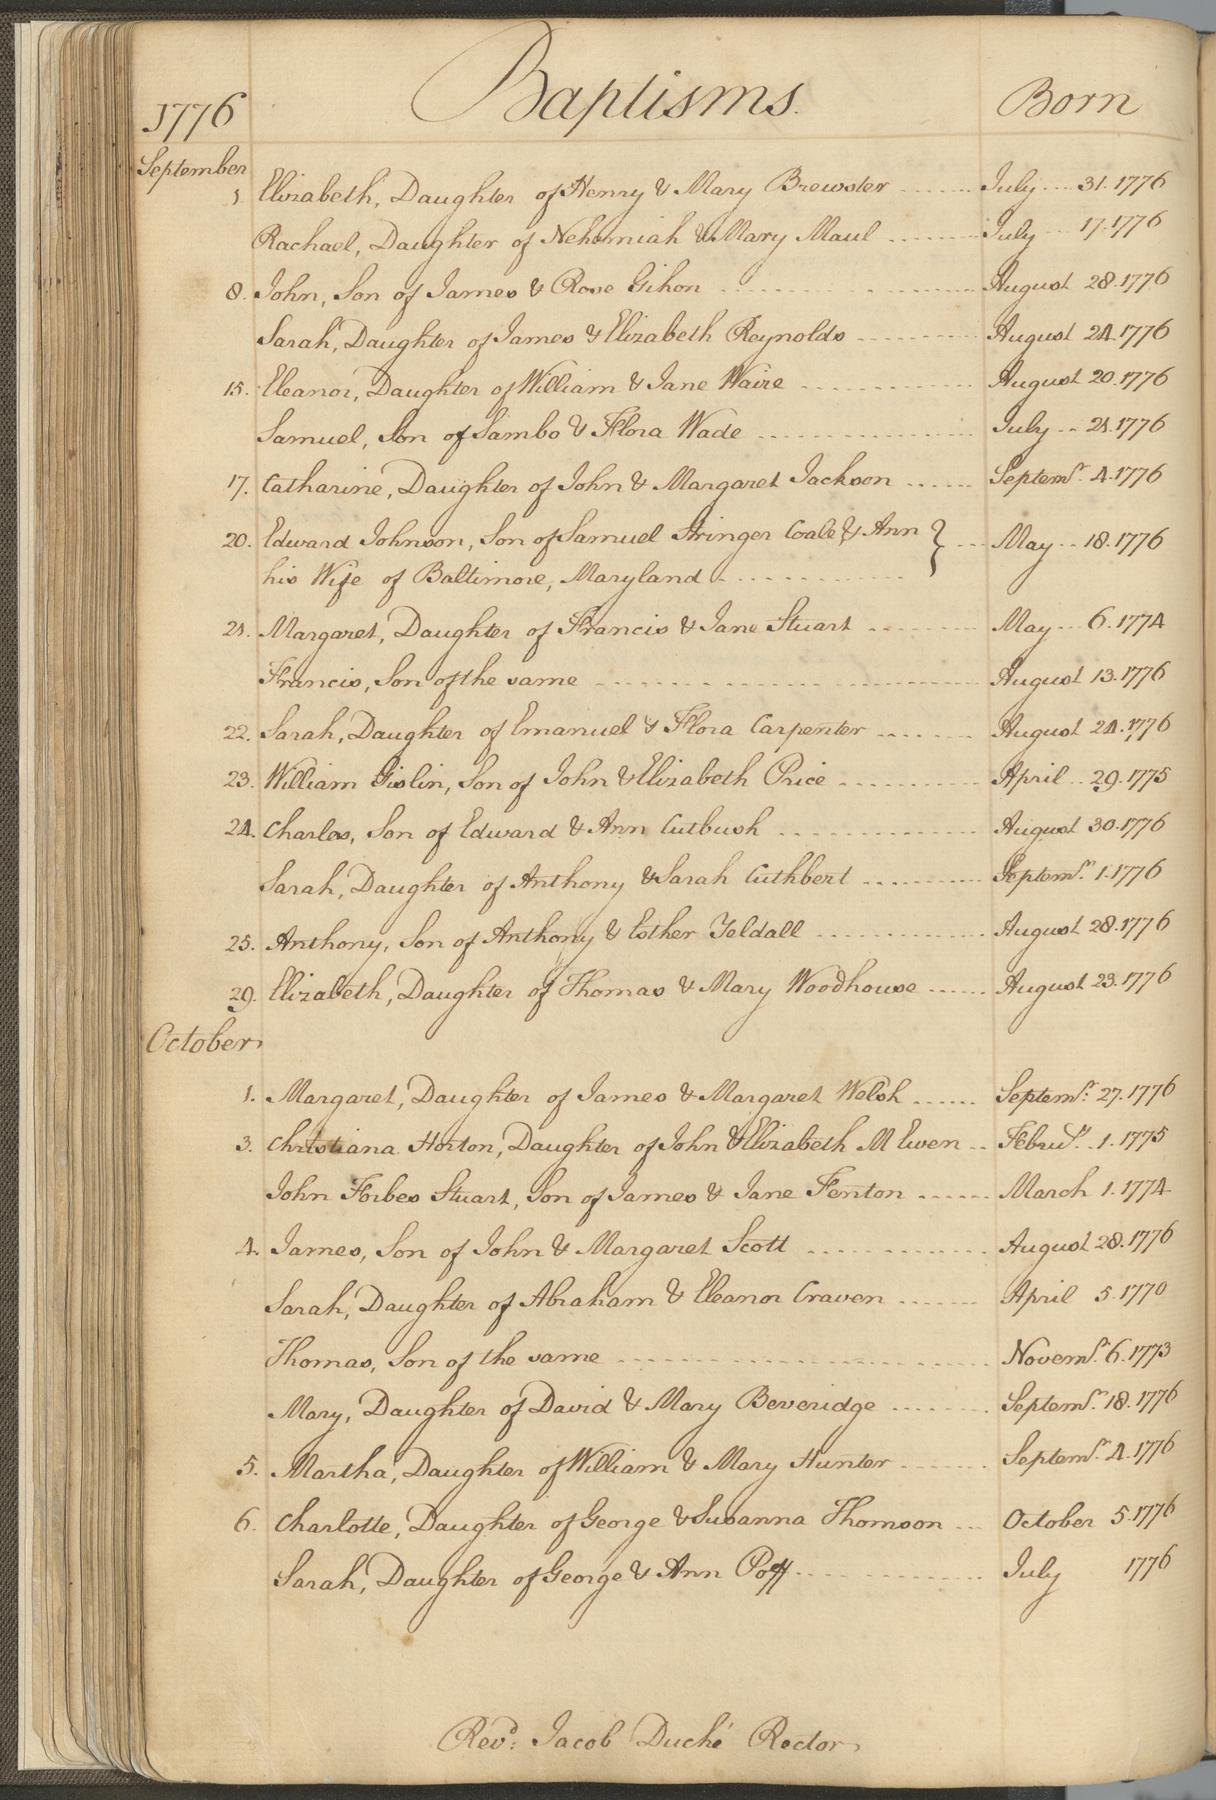 1776 Baptisms. Born
September
1 Elizabeth, Daughter of Henry & Mary Brewster July 31. 1776
Rachael, Daughter of Nehemiah & Mary Maul July 17. 1776
8. John, Son of James & Rose Gihon August 28. 1776
Sarah, Daughter of James & Elizabeth Reynolds August 24. 1776
15. Eleanor, Daughter of William & Jane Waire August 20. 1776
Samuel, Son of Sambo & Flora Wade July 21. 1776
17. Catharine, Daughter of John & Margaret Jackson Septemr. 4. 1776
20. Edward Johnson, Son of Samuel Stringer Coale & Ann } May 18. 1776
his Wife of Baltimore, Maryland
21. Margaret, Daughter of Francis & Jane Stuart May 6. 1774
Francis, Son of the same August 13. 1776
22. Sarah, Daughter of Emanuel & Flora Carpenter August 24. 1776
23. William Gislin, Son of John & Elizabeth Price April 29. 1775
24. Charles, Son of Edward & Ann Cutbush August 30. 1776
Sarah, Daughter of Anthony & Sarah Cuthbert Septemr. 1. 1776
25. Anthony, Son of Anthony & Esther Yeldall August 28. 1776
29. Elizabeth, Daughter of Thomas & Mary Woodhouse August 23. 1776
October
1. Margaret, Daughter of James & Margaret Welsh Septemr. 27. 1776
3. Christiana Horton, Daughter of John & Elizabeth M Ewen Febru.ry 1. 1775
John Forbes Stuart, Son of James & Jane Fenton March 1. 1774
4. James, Son of John & Margaret Scott August 28. 1776
Sarah, Daughter of Abraham & Eleanor Craven April 5. 1770
Thomas, Son of the same Novemr. 6. 1773
Mary, Daughter of David & Mary Beveridge Septemr. 18. 1776
5. Martha, Daughter of William & Mary Hunter Septemr. 4. 1776
6. Charlotte, Daughter of George & Susanna Thomson October 5. 1776
Sarah, Daughter of George & Ann Poff July 1776
Revd. Jacob Duché Rector